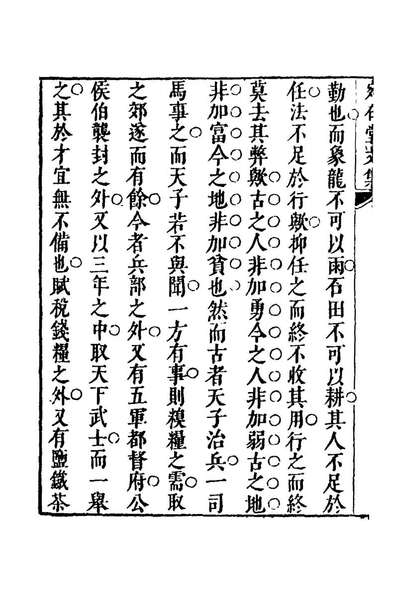 堂文集
勤也而象龍不可以雨石田不可以耕其人不足於
任法不足於行歟抑任之而終不收其用行之而終
莫去其弊歟古之人非加勇今之人非加弱古之地
非加富今之地非加貧也然而古者天子治兵一司
馬事之而天子若不與聞一方有事則糗糧之需取
之郊遂而有餘今者兵部之外又有五軍都督府公
侯伯襲封之外又以三年之中取天下武士而一舉
之其於才宜無不備也賦稅錢糧之外又有鹽鐵茶